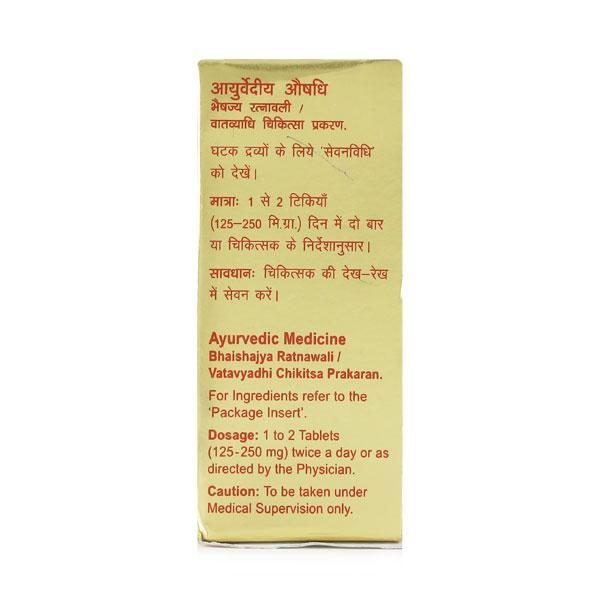 आयुर्वेदीय औषधि
भैषज्य रत्नावली /
वातव्याधि चिकित्सा प्रकरण.
घटक द्रव्यों के लिये 'सेवनविधि'
को देखें।
मात्राः 1 से 2 टिकियाँ
(125–250 मि.ग्रा.) दिन में दो बार
या चिकित्सक के निर्देशानुसार।
सावधानः चिकित्सक की देख–रेख
में सेवन करें।
Ayurvedic Medicine
Bhaishajya Ratnawali /
Vatavyadhi Chikitsa Prakaran.
For Ingredients refer to the
'Package Insert'.
Dosage: 1 to 2 Tablets
(125-250 mg) twice a day or as
directed by the Physician.
Caution: To be taken under
Medical Supervision only.